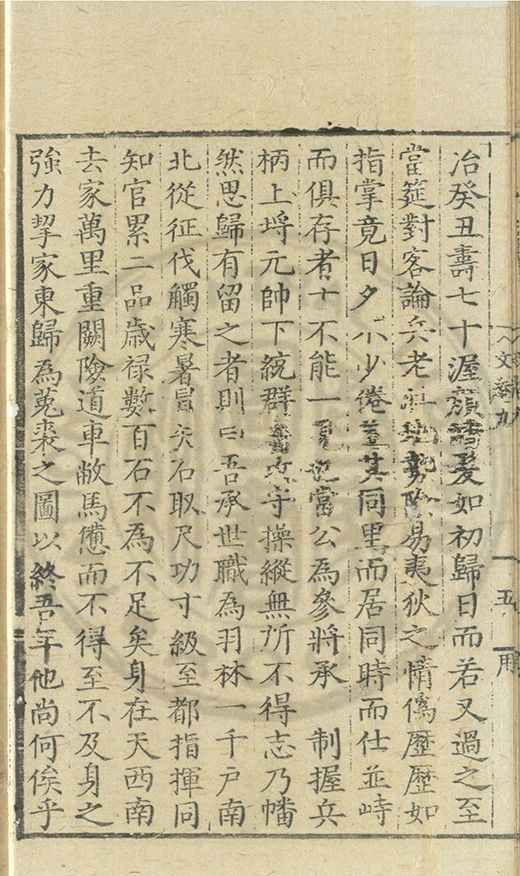 冶癸丑壽七十渥顏鬒髮如初歸日而若又過之至
當筵對客論兵老 地勢險易夷狄之情僞歷歷如
指掌竟日夕不少倦葢其同里而居同時而仕並峙
而俱存者十不能一 當公為參將承　制握兵
柄上埓元帥下統群 攻守操縱無所不得志乃幡
然思歸有留之者則曰吾承世職為羽林一千戶南
北從征伐觸寒暑冒矢石取尺功寸級至都指揮同
知官累二品歲禄數百石不為不足矣身在天西南
去家萬里重關險道車敝馬憊而不得至不及身之
強力挈家東歸為菟裘之圖以終吾年他尚何俟乎
文卷九
五